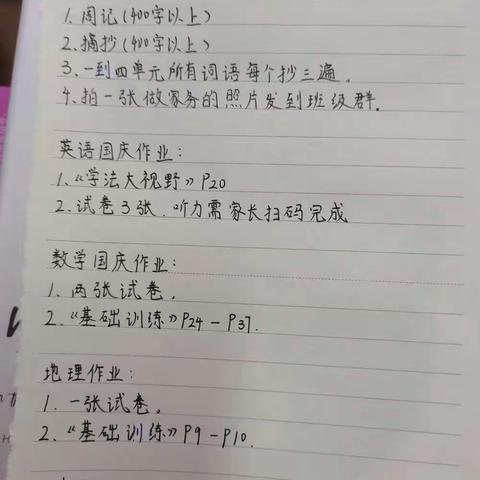 1. 周记(400字以上)
2. 摘抄(400字以上)
3. 一到四单元所有词语每个抄三遍。
4. 拍一张做家务的照片发到班级群.
英语国庆作业:
1. 《学法大视野》P20
2. 试卷3张. 听力需家长扫码完成
数学国庆作业:
1. 两张试卷.
2. 《基础训练》P24-P37.
地理作业:
1. 一张试卷。
2. 《基础训练》P9-P10.